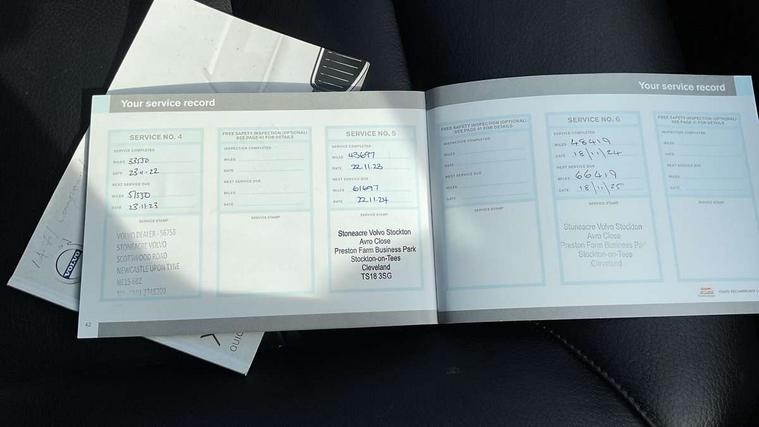 Your service record
SERVICE NO. 4
SERVICE COMPLETED
MILES 33530
DATE 23-11-22
NEXT SERVICE DUE
MILES 51530
DATE 23.11.23
SERVICE STAMP
VOLVO DEALER - 56758
STONEACRE VOLVO
SCOTSWOOD ROAD
NEWCASTLE UPON TYNE
FREE SAFETY INSPECTION (OPTIONAL)
SEE PAGE 41 FOR DETAILS
INSPECTION COMPLETED
MILES
DATE
NEXT SERVICE DUE
MILES
DATE
SERVICE STAMP
SERVICE NO. 5
SERVICE COMPLETED
MILES 43697
DATE 22.11.23
NEXT SERVICE DUE
MILES 61697
DATE 22.11.24
SERVICE STAMP
Stoneacre Volvo Stockton
Avro Close
Preston Farm Business Park
Stockton-on-Tees
Cleveland
TS18 3SG
42
Your service record
FREE SAFETY INSPECTION (OPTIONAL)
SEE PAGE 41 FOR DETAILS
INSPECTION COMPLETED
MILES
DATE
NEXT SERVICE DUE
MILES
DATE
SERVICE STAMP
SERVICE NO. 6
SERVICE COMPLETED
MILES 48419
DATE 18/11/24
NEXT SERVICE DUE
MILES 66419
DATE 18/11/25
SERVICE STAMP
Stoneacre Volvo Stockton
Avro Close
Preston Farm Business Park
Stockton-on-Tees
Cleveland
FREE SAFETY INSPECTION (OPTIONAL)
SEE PAGE 41 FOR DETAILS
INSPECTION COMPLETED
MILES
DATE
NEXT SERVICE DUE
MILES
DATE
SERVICE STAMP
VOLVO